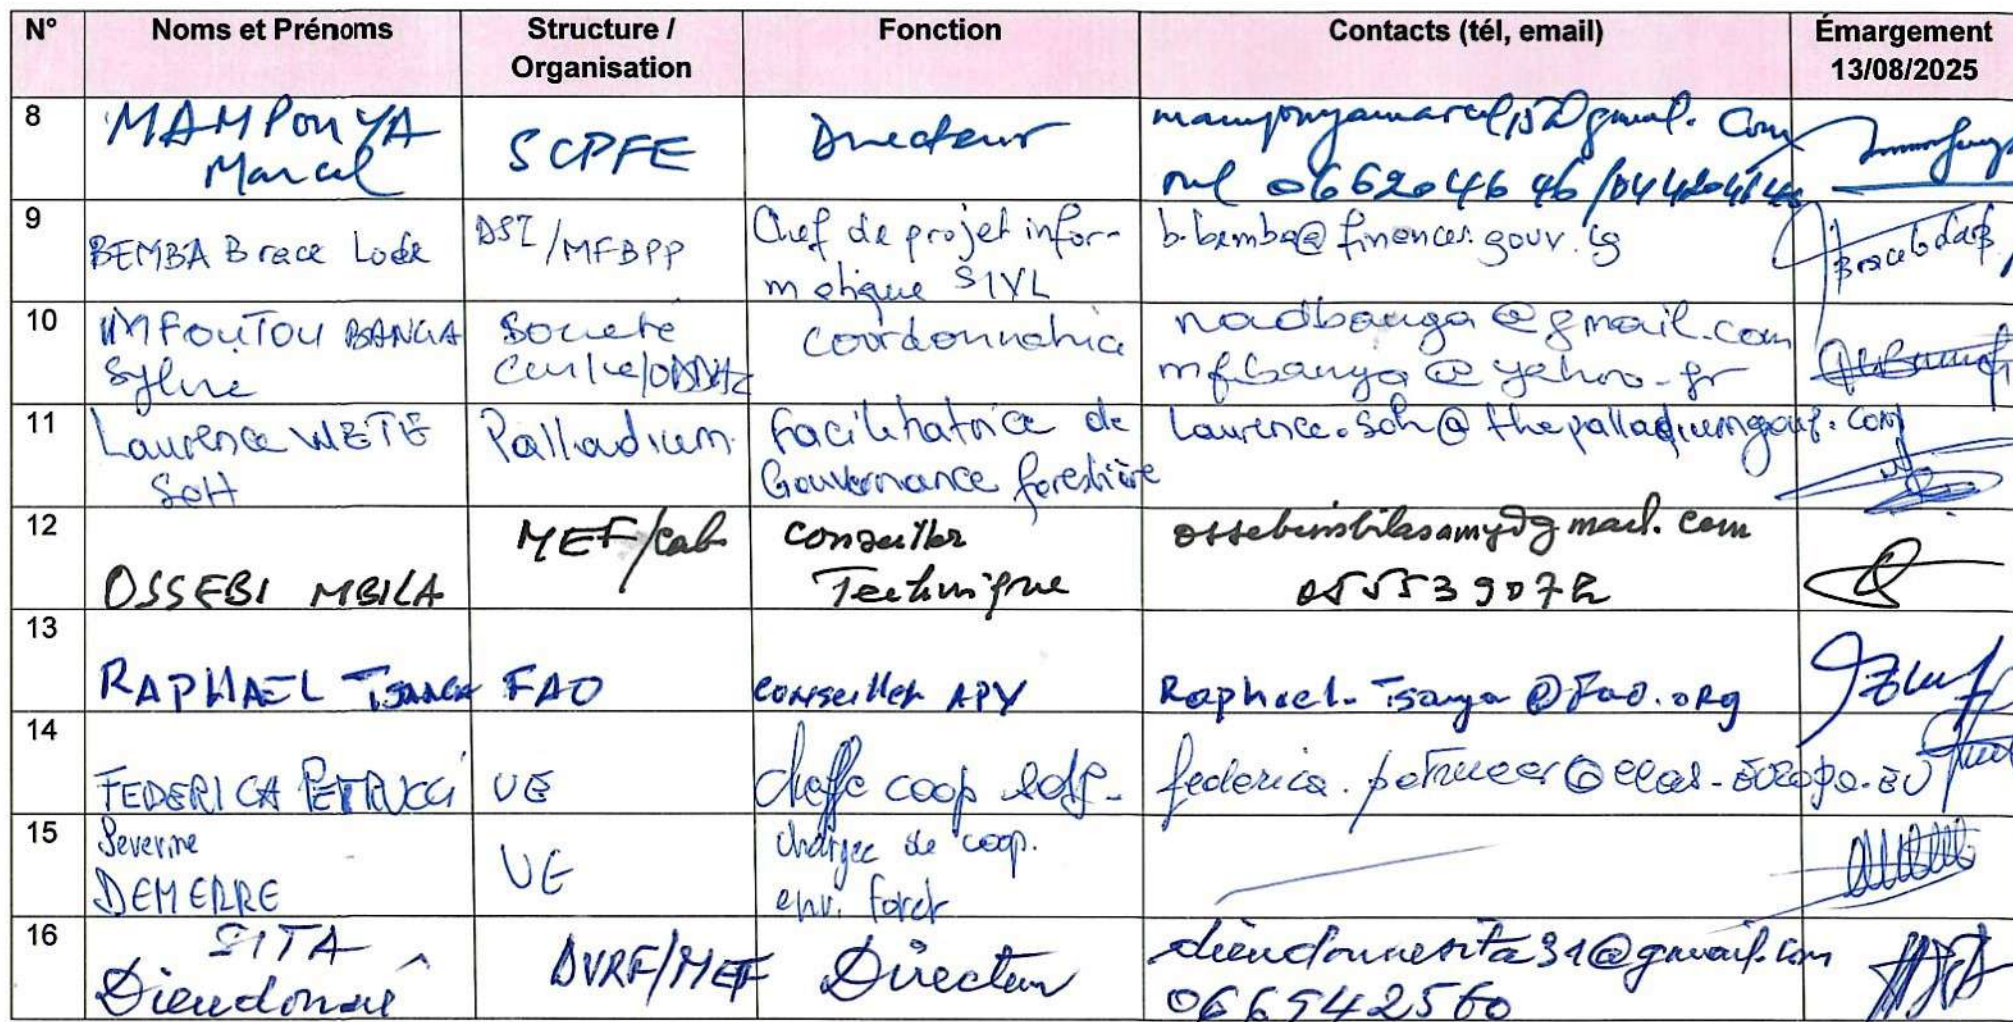 N° Noms et Prénoms Structure / Organisation Fonction Contacts (tél, email) Émargement 13/08/2025
8 MAMPOUYA Marcel SCPFE Directeur
066204646
9 BEMBA Brace Lock DSI/MFBPP Chef de projet infor-
matique SIVL b.bemba@finances.gouv.cg
10 MFOUTOU BANGA Sylvie Societe Coordonnatrice nadbanga@gmail.com
mfbanga@yahoo.fr
11 Laurence WETE SOH Palladium Facilitatrice de
Gouvernance forestière Laurence.soh@thepalladiumgroup.com
12 OSSEBI MBILA MEF/Cab Conseiller
Technique ossebimbilasamy@gmail.com
13 RAPHAEL TSANGA FAO Conseiller APV Raphael.Tsanga@Fao.org
14 FEDERICA PETRUCCI UE cheffe coop
15 Severine
DEMERRE UE chargee de coop.
env. foret
16 SITA
Dieudonné DVRF/MEF Directeur dieudonnesita31@gmail.com
066542560